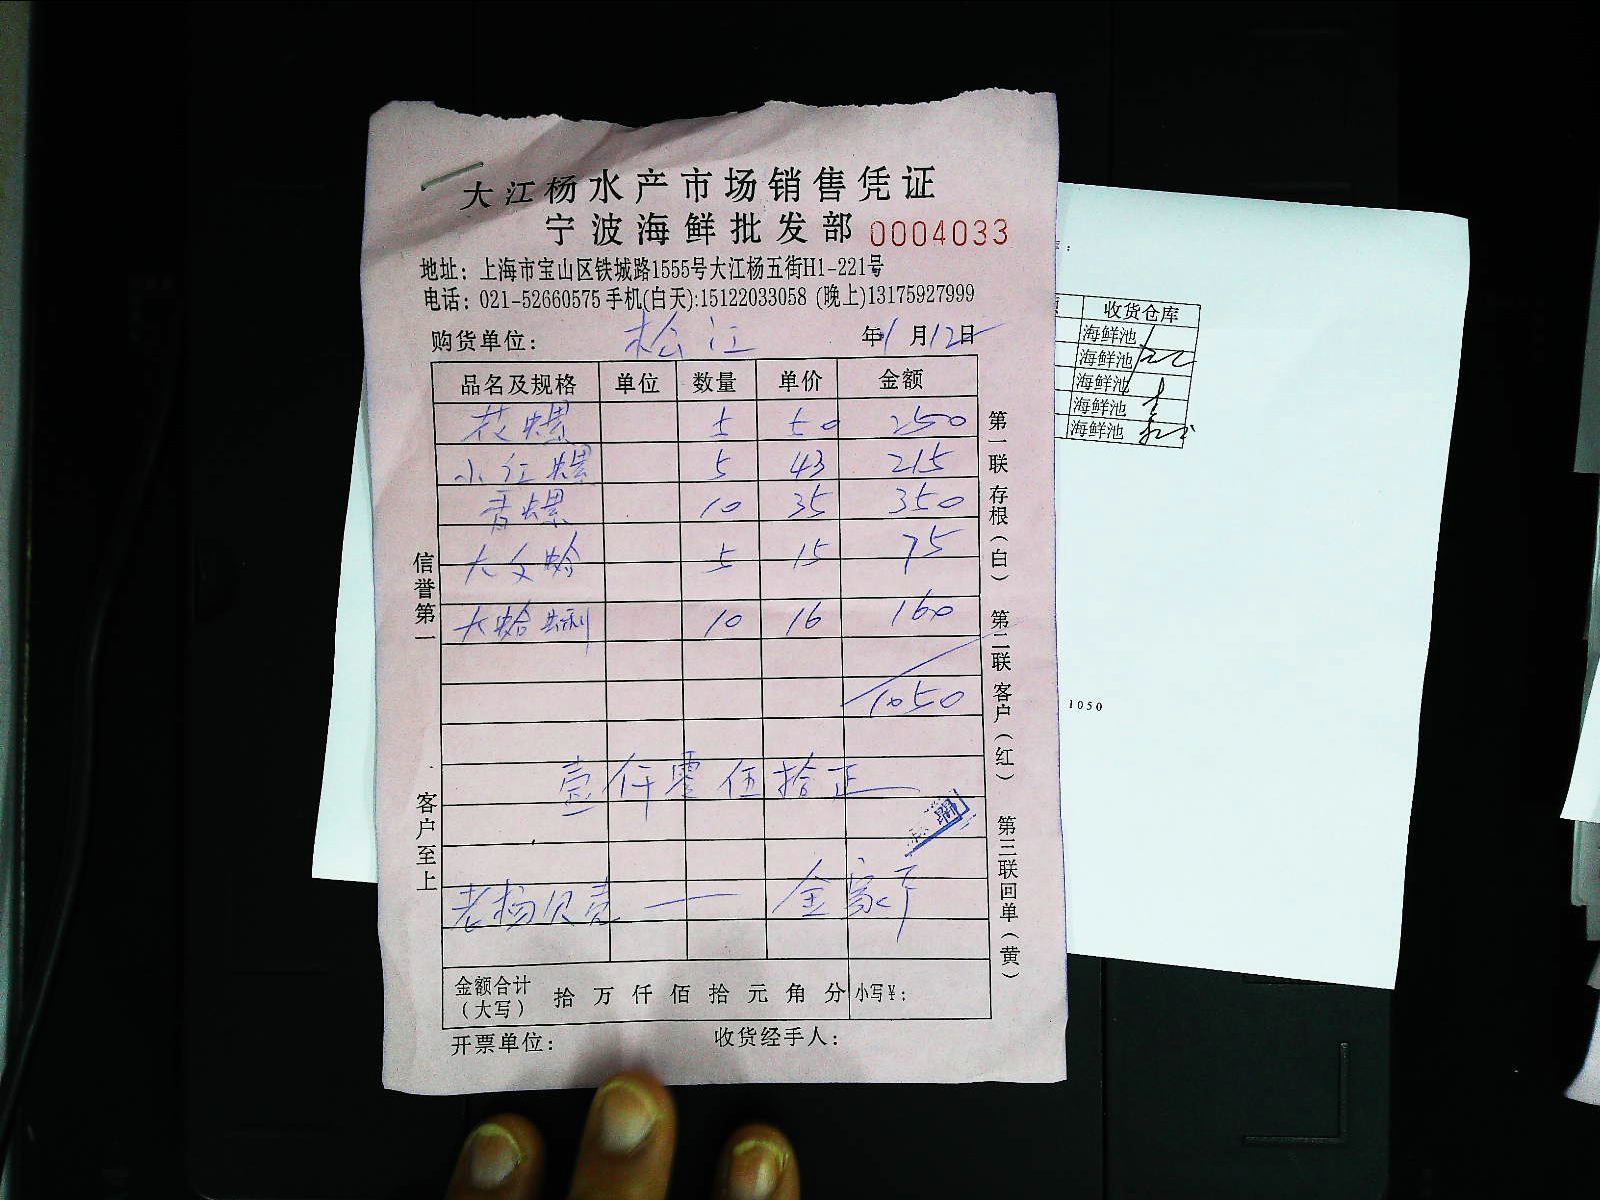 大江杨水产市场销售凭证
宁波海鲜批发部 0004033
地址：上海市宝山区铁城路1555号大江杨五街H1-221号
电话：021-52660575 手机(白天):15122033058 (晚上)13175927999
购货单位： 松江 年1月12日
品名及规格 单位 数量 单价 金额
花螺 5 50 250
小红螺 5 43 215
香螺 10 35 350
大文蛤 5 15 75
大蛤蜊 10 16 160
1050
壹仟零伍拾正
老杨贝壳 — 金家产
金额合计（大写） 拾 万 仟 佰 拾 元 角 分 小写¥：
开票单位： 收货经手人：
信誉第一
客户至上
第一联存根（白） 第二联客户（红） 第三联回单（黄）
收货仓库
海鲜池
海鲜池
海鲜池
海鲜池
海鲜池
1050